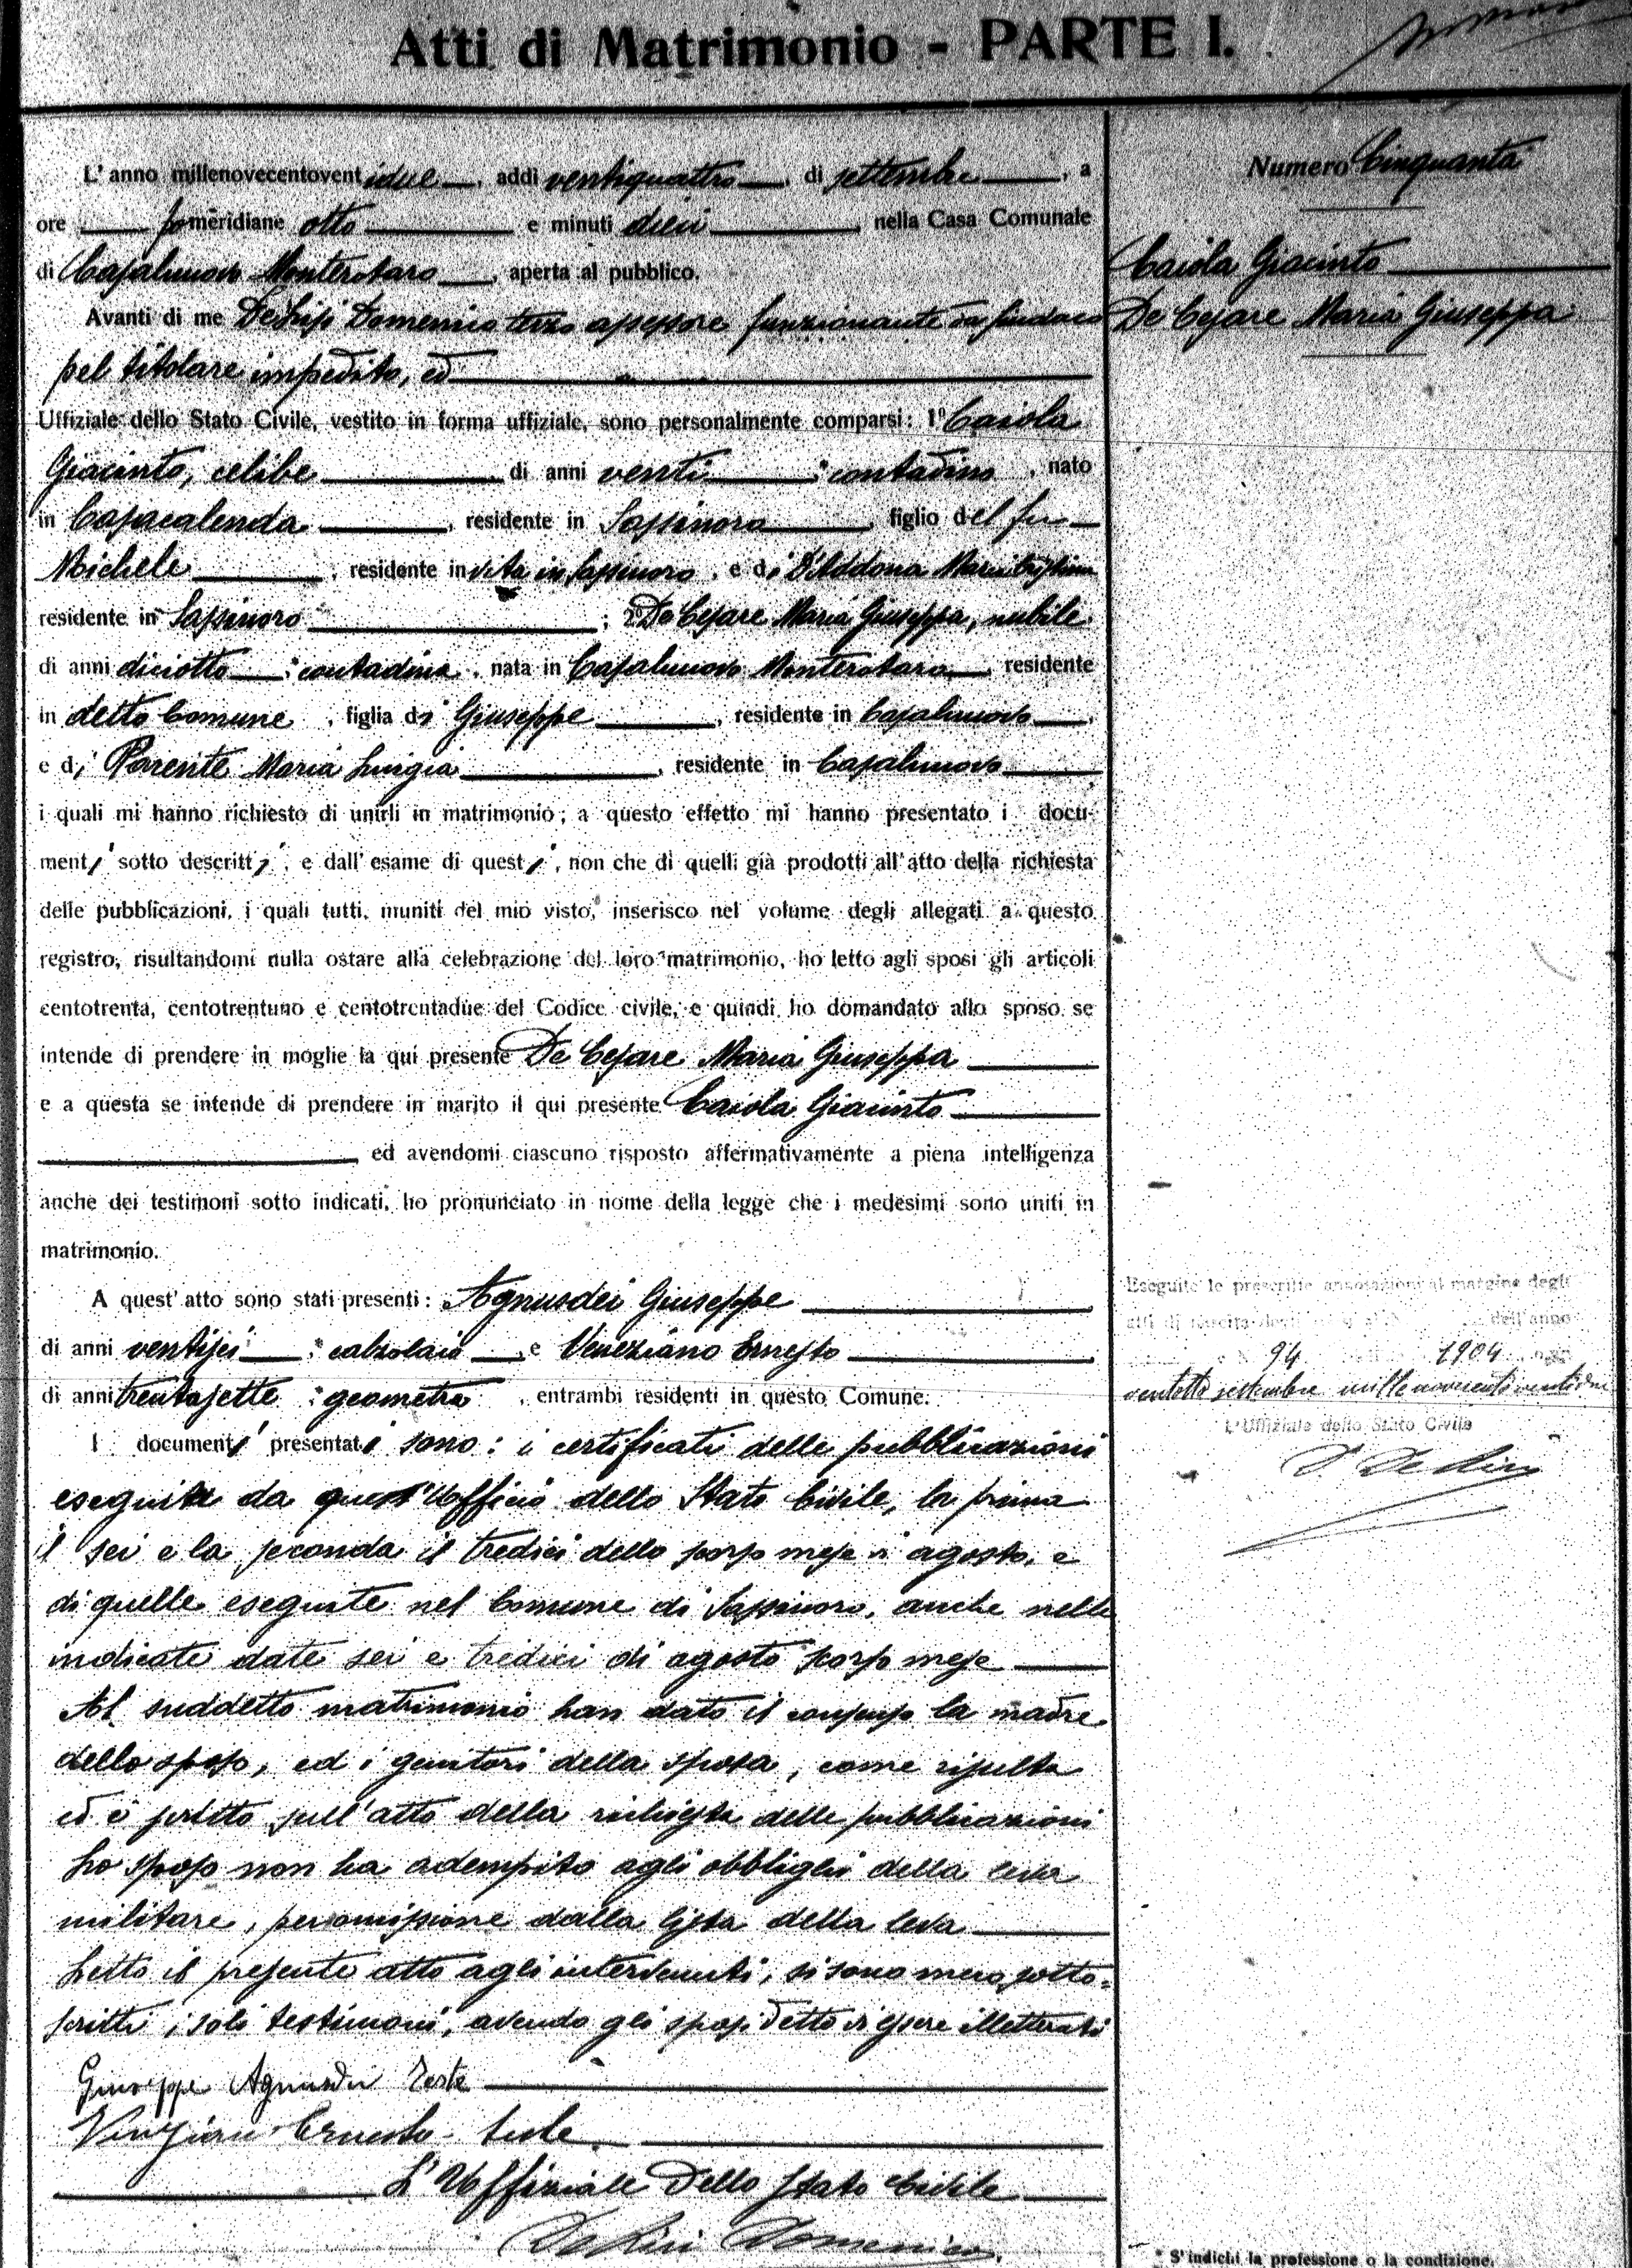 Atti di Matrimonio - PARTE I.
L'anno millenovecentoventidue, addì ventiquattro, di settembre, a
ore pomeridiane otto e minuti dieci nella Casa Comunale
di Casalnuovo Monterotaro, aperta al pubblico.
Avanti di me Domenico terzo assessore funzionante da sindaco
pel titolare impedito, ed
Uffiziale dello Stato Civile, vestito in forma uffiziale, sono personalmente comparsi: 1° Caiola
Giacinto, celibe di anni venti, * contadino, nato
in Casacalenda, residente in Sassinoro figlio del fu
Michele, residente in vita in Sassinoro, e di D'Addona Maria Cristina
residente in Sassinoro; 2° De Cesare Maria Giuseppa, nubile
di anni diciotto * contadina, nata in Casalnuovo Monterotaro, residente
in detto Comune, figlia di Giuseppe, residente in Casalnuovo,
e di Parente Maria Luigia, residente in Casalnuovo
i quali mi hanno richiesto di unirli in matrimonio; a questo effetto mi hanno presentato i docu-
menti sotto descritti, e dall'esame di questi, non che di quelli già prodotti all'atto della richiesta
delle pubblicazioni, i quali tutti, muniti del mio visto, inserisco nel volume degli allegati a questo
registro, risultandomi nulla ostare alla celebrazione del loro matrimonio, ho letto agli sposi gli articoli
centotrenta, centotrentuno e centotrentadue del Codice civile, e quindi ho domandato allo sposo se
intende di prendere in moglie la qui presente De Cesare Maria Giuseppa
e a questa se intende di prendere in marito il qui presente Caiola Giacinto
ed avendomi ciascuno risposto affermativamente a piena intelligenza
anche dei testimoni sotto indicati, ho pronunciato in nome della legge che i medesimi sono uniti in
matrimonio.
A quest'atto sono stati presenti: Agnusdei Giuseppe
di anni ventisei, * calzolaio, e Veneziano Ernesto
di anni trentasette * geometra, entrambi residenti in questo Comune.
I documenti presentati sono: i certificati delle pubblicazioni
eseguite da quest'Ufficio dello Stato Civile, la prima
il sei e la seconda il tredici dello scorso mese di agosto, e
di quelle eseguite nel Comune di Sassinoro, anche nelle
indicate date sei e tredici di agosto scorso mese
Al suddetto matrimonio han dato il consenso la madre
dello sposo, ed i genitori della sposa, come risulta
ed è scritto sull'atto della richiesta delle pubblicazioni
Lo sposo non ha adempito agli obblighi della leva
militare, per omissione dalla lista della leva
Letto il presente atto agli intervenuti, si sono meco sotto=
scritti i soli testimoni, avendo gli sposi detto di essere illetterati
Giuseppe Agnusdei teste
Veneziano Ernesto - teste
L'Uffiziale dello Stato Civile
Domenico
Numero Cinquanta
Caiola Giacinto
De Cesare Maria Giuseppa
Eseguite le prescritte annotazioni al margine degli
atti di nascita degli dell'anno
94 1904
ventotto settembre millenovecentoventidue
L'Uffiziale dello Stato Civile
* S'indichi la professione o la condizione.